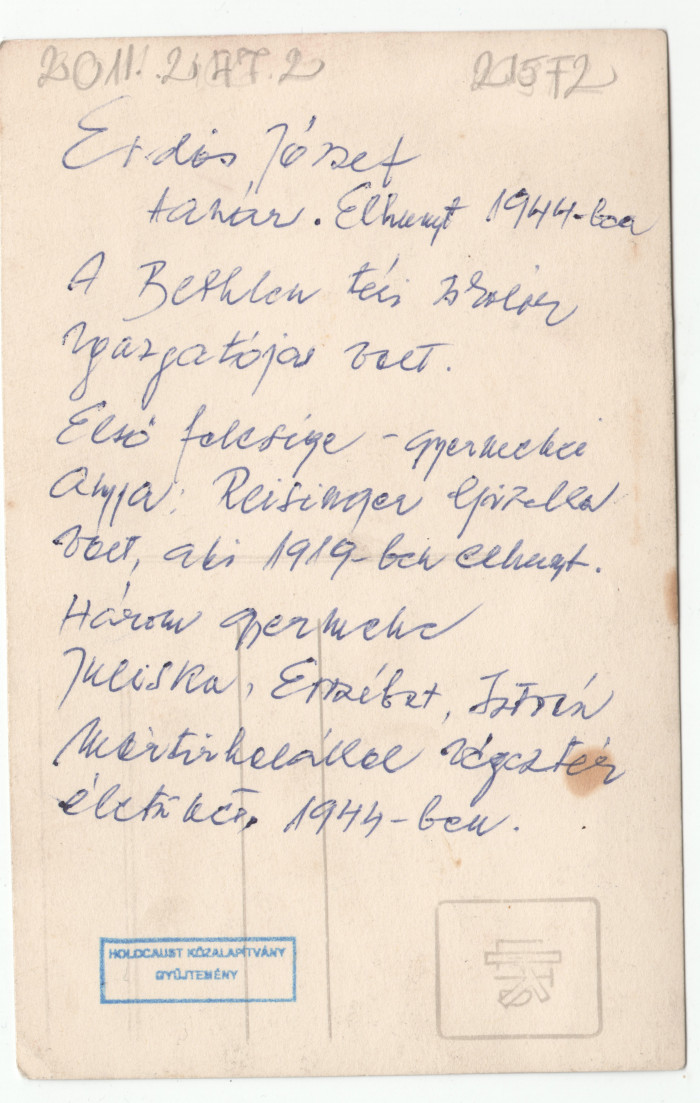 2011.247.2 21572
Erdős József
tanár. Elhunyt 1944-ben
A Bethlen téri iskola
igazgatója volt.
Első felesége - gyermekei
anyja: Reisinger Gizella
volt, aki 1919-ben elhunyt.
Három gyermeke
Juliska, Erzsébet, István
Mártírhalállal végezték
életüket, 1944-ben.
HOLOCAUST KÖZALAPÍTVÁNY
GYŰJTEMÉNY